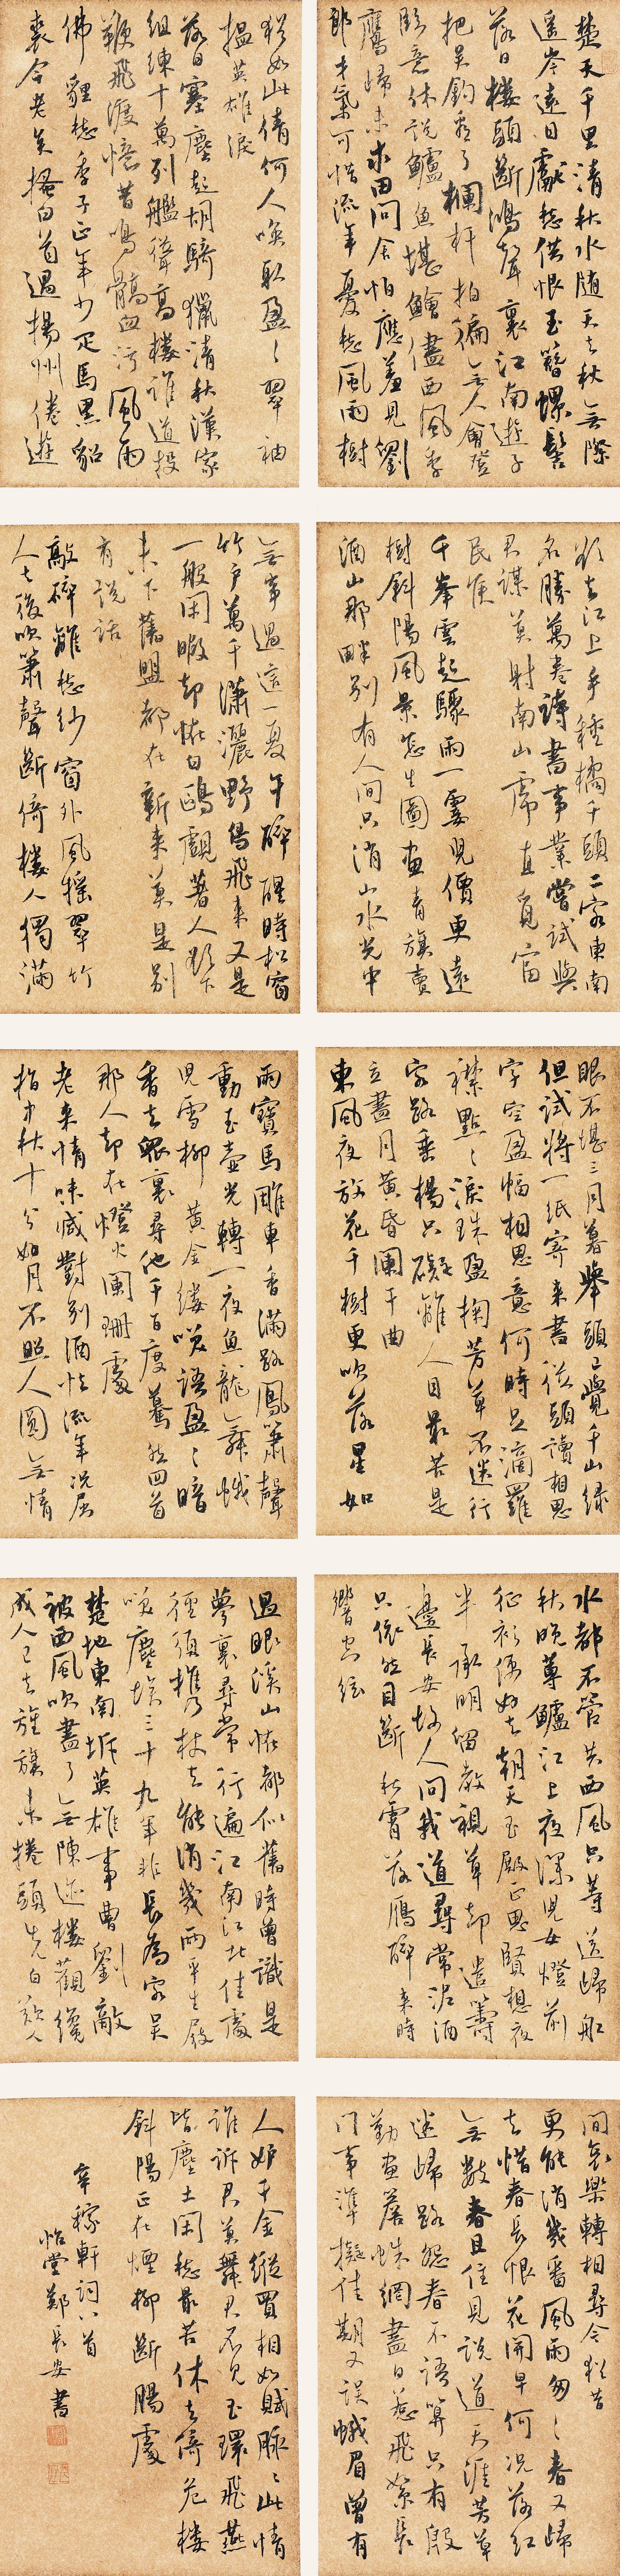 楚天千里清秋水随天去秋無際
遥岑遠目獻愁供恨玉簪螺髻
落日樓頭斷鴻聲裏江南遊子
把吳鈎看了欄杆拍徧無人會登
臨意休說鱸魚堪鱠儘西風季
鷹歸未求田問舍怕應羞見劉
郎才氣可惜流年憂愁風雨樹
猶如此倩何人喚取盈〻翠袖
揾英雄淚
落日塞塵起胡騎獵清秋漢家
組練十萬列艦聳高樓誰道投
鞭飛渡憶昔鳴髇血污風雨
佛貍愁季子正年少匹馬黑貂
裘今老矣搔白首過揚州倦遊
欲去江上手種橘千頭二客東南
名勝萬卷詩書事業嘗試與
君謀莫射南山虎直覓富
民侯
千峯雲起驟雨一霎兒價更遠
樹斜陽風景怎生圖畫青旗賣
酒山那畔别有人間只消山水光中
無事過這一夏午醉醒時松窗
竹户萬千瀟灑野鳥飛來又是
一般閑暇却怪白鷗覷著人欲下
未下舊盟都在新來莫是别
有說話
敲碎離愁紗窗外風摇翠竹
人去後吹簫聲斷倚樓人獨滿
眼不堪三月暮舉頭已覺千山緑
但試將一紙寄來書從頭讀相思
字空盈幅相思意何時足滴羅
襟點〻淚珠盈掬芳草不迷行
客路垂楊只礙離人目最苦是
立盡月黄昏闌干曲
東風夜放花千樹更吹落星如
雨寶馬雕車香滿路鳳簫聲
動玉壺光轉一夜魚龍舞蛾
兒雪柳黄金縷笑語盈〻暗
香去衆裏尋他千百度驀然回首
那人却在燈火闌珊處
老來情味減對别酒怯流年况屈
指中秋十分好月不照人圓無情
水都不管共西風只等送歸船
秋晚蓴鱸江上夜深兒女燈前
征衫便好去朝天玉殿正思賢想夜
半承明留教視草却遣籌
邊長安故人問我道尋常泥酒
只依然目斷秋霄落雁醉來時
響空弦
過眼溪山怪都似舊時曾識是
夢裏尋常行遍江南江北佳處
徑須攜杖去能消幾兩平生屐
笑塵埃三十九年非長為客吳
楚地東南坼英雄事曹劉敵
被西風吹盡了無陳迹樓觀纔
成人已去旌旗未捲頭先白歎人
間哀樂轉相尋今猶昔
更能消幾番風雨匆〻春又歸
去惜春長恨花開早何况落紅
無數春且住見說道天涯芳草
迷歸路怨春不語算只有殷
勤畫簷蛛網盡日惹飛絮長
門事準擬佳期又誤蛾眉曾有
人妒千金縱買相如賦脉〻此情
誰訴君莫舞君不見玉環飛燕
皆塵土閑愁最苦休去倚危樓
斜陽正在煙柳斷腸處
辛稼軒詞八首
怡堂鄭長安書